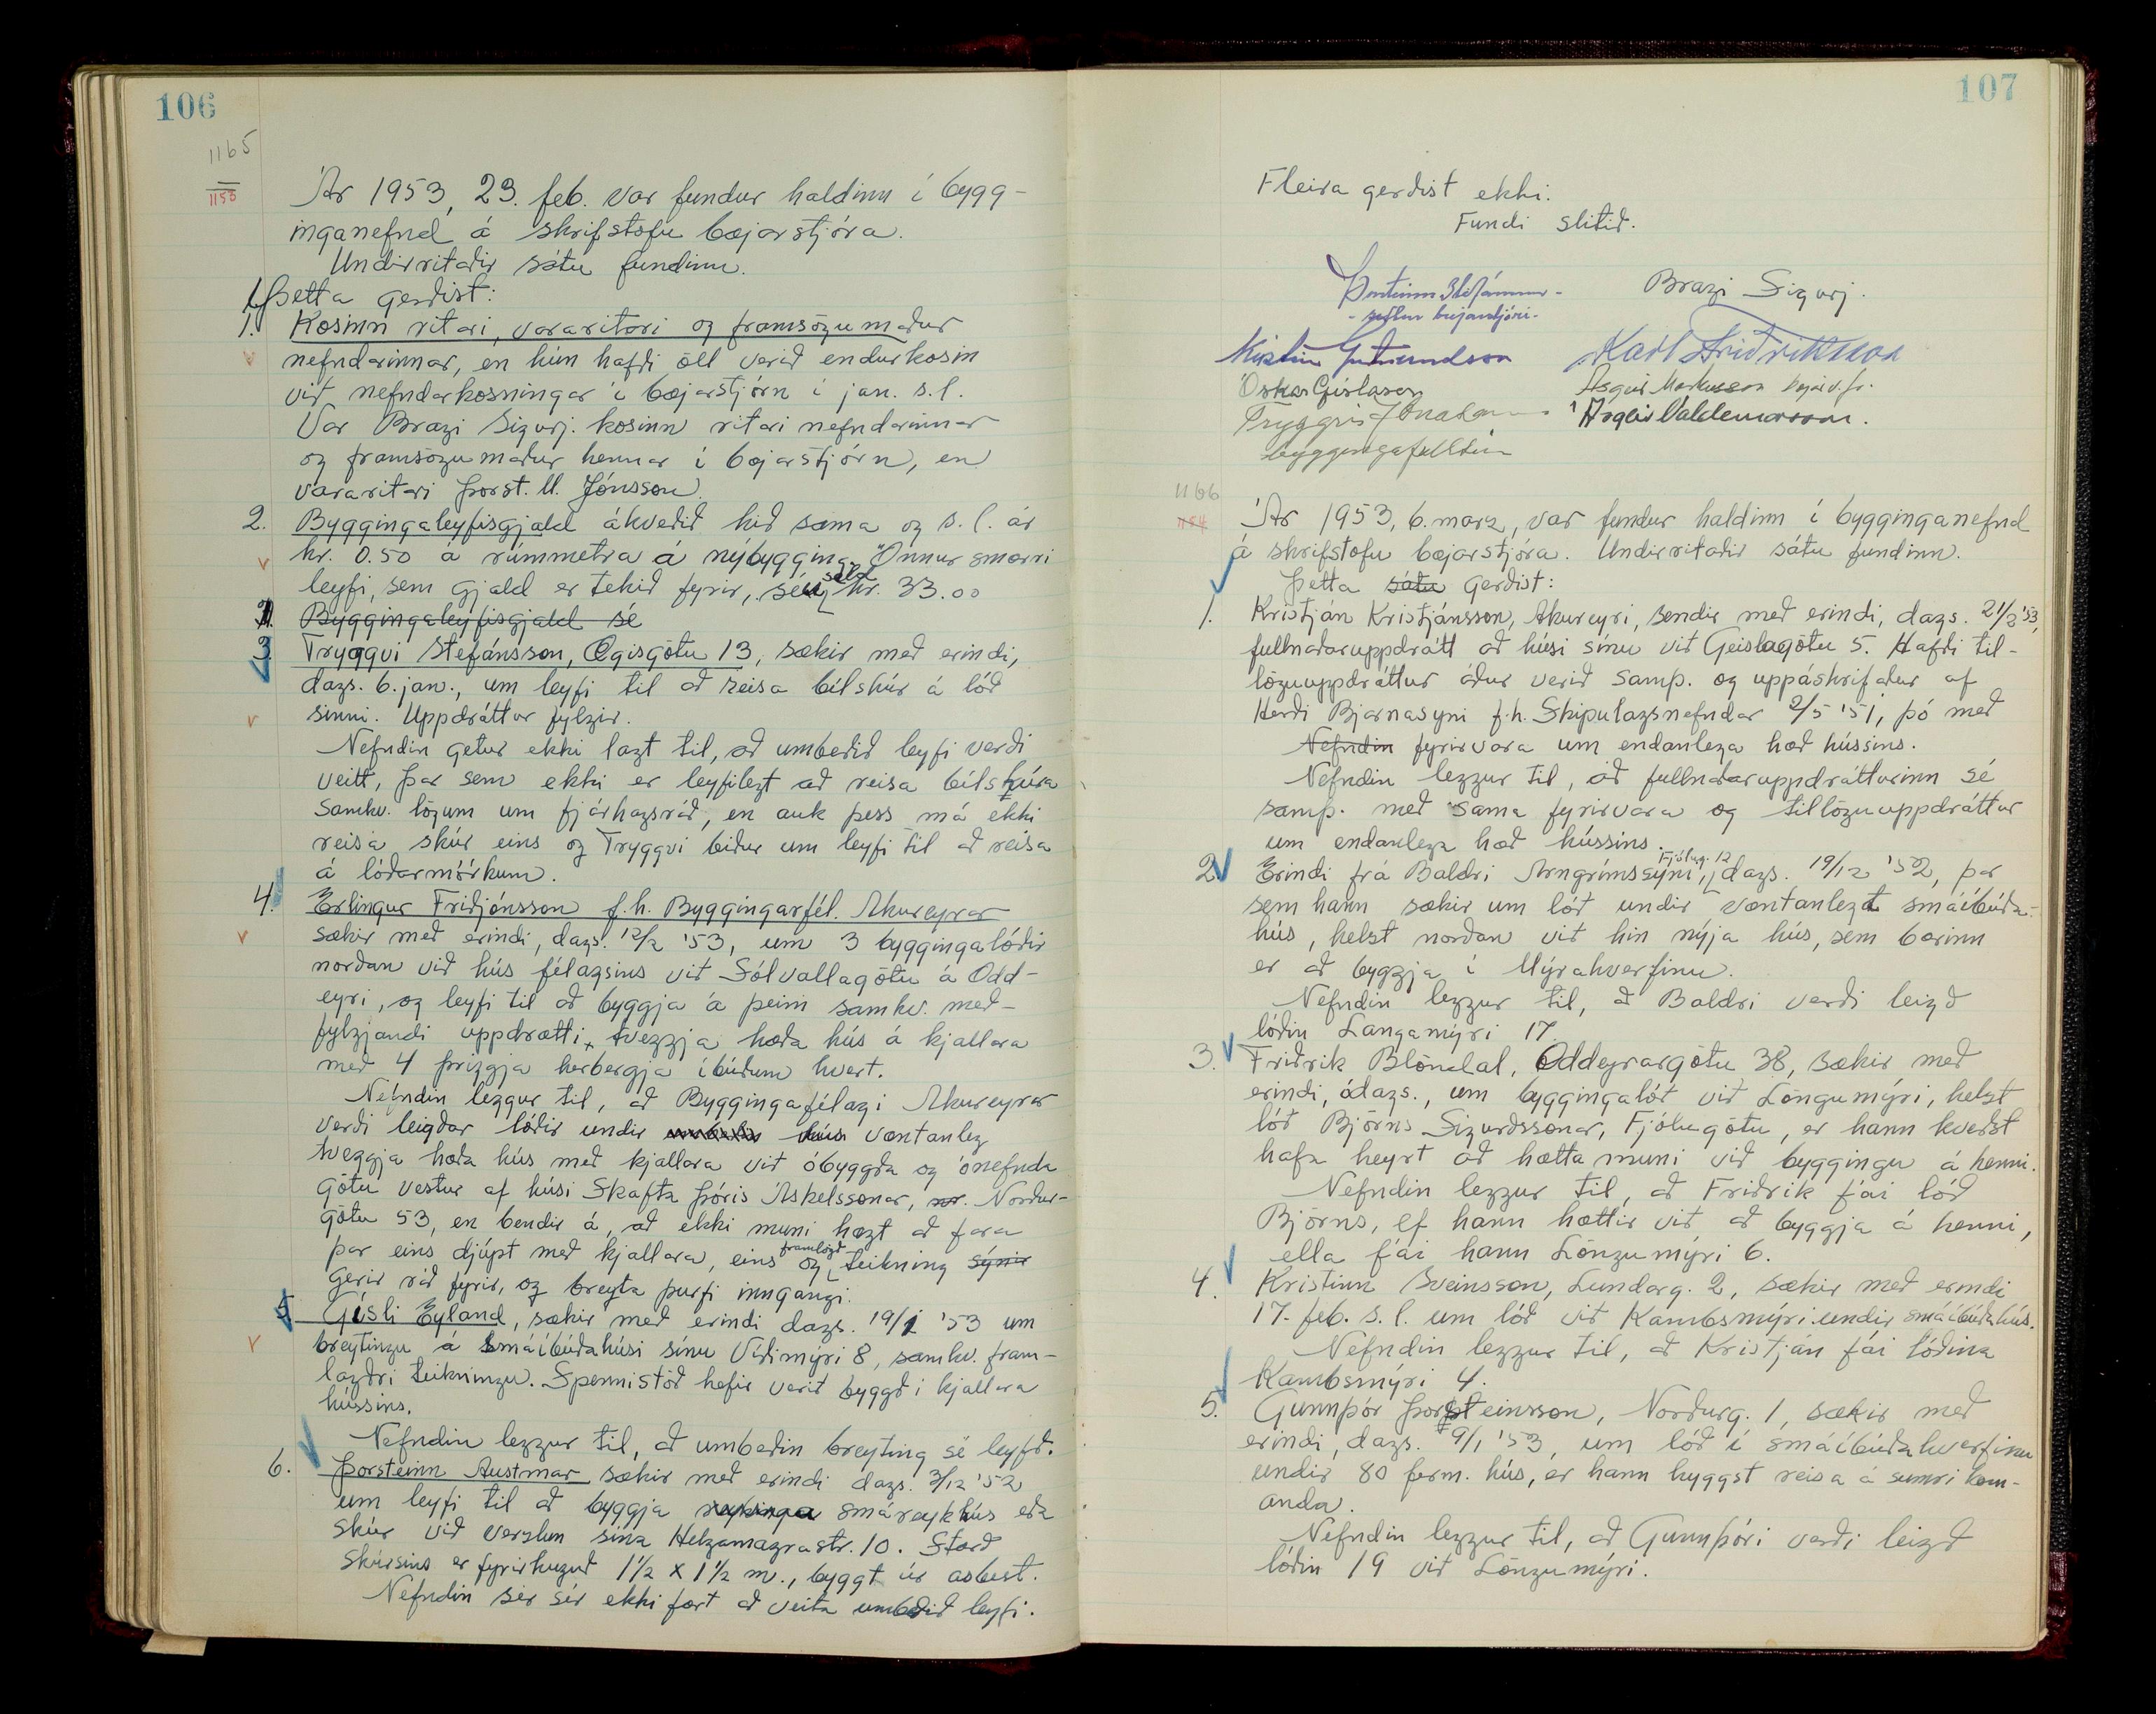 106
1165
1153
Ár 1953, 23. feb. var fundur haldinn í bygg-
inganefnd á skrifstofu bæjarstjóra.
Undirritaðir sátu fundinn.
Þetta gerðist:
1. Kosinn ritari, vararitari og framsögumaður
nefndarinnar, en hún hafði öll verið endurkosin
við nefndarkosningar í bæjarstjórn í jan. s.l.
Var Bragi Sigurj. kosinn ritari nefndarinnar
og framsögumaður hennar í bæjarstjórn, en
vararitari Þorst. M. Jónsson.
2. Byggingaleyfisgjald ákveðið hið sama og s.l. ár
kr. 0.50 á rúmmetra á nýbygging. Önnur smærri
leyfi, sem gjald er tekið fyrir, séu seld kr. 33.00
Byggingaleyfisgjald sé
3. Tryggvi Stefánsson, Ægisgötu 13, sækir með erindi,
dags. 6. jan., um leyfi til að reisa bílskúr á lóð
sinni. Uppdráttur fylgir.
Nefndin getur ekki lagt til, að umbeðið leyfi verði
veitt, þar sem ekki er leyfilegt að reisa bílskúra
samkv. lögum um fjárhagsráð, en auk þess má ekki
reisa skúr eins og Tryggvi biður um leyfi til að reisa
á lóðarmörkum.
4. Erlingur Friðjónsson f.h. Byggingarfél. Akureyrar
sækir með erindi, dags. 12/2 '53, um 3 byggingalóðir
norðan við hús félagsins við Sólvallagötu á Odd-
eyri, og leyfi til að byggja á þeim samkv. með-
fylgjandi uppdrætti, tveggja hæða hús á kjallara
með 4 þriggja herbergja íbúðum hvert.
Nefndin leggur til, að Byggingafélagi Akureyrar
verði leigðar lóðir undir hús væntanleg
tveggja hæða hús með kjallara við óbyggða og ónefnda
götu vestur af húsi Skafta Þóris Áskelssonar, nr. Norður-
götu 53, en bendir á, að ekki muni hægt að fara
þar eins djúpt með kjallara, eins og framlögð teikning sýnir
gerir ráð fyrir, og breyta þurfi inngangi.
5. Gísli Eyland, sækir með erindi dags. 19/1 '53 um
breytingu á smáíbúðahúsi sínu Víðimýri 8, samkv. fram-
lagðri teikningu. Spennistöð hefir verið byggð í kjallara
hússins.
Nefndin leggur til, að umbeðin breyting sé leyfð.
6. Þorsteinn Austmar sækir með erindi dags. 3/12 '52
um leyfi til að byggja smáreykhús eða
skúr við verzlun sína Helgamagrastr. 10. Stærð
skúrsins er fyrirhuguð 1 1/2 x 1 1/2 m., byggt úr asbest.
Nefndin sér sér ekki fært að veita umbeðið leyfi.
107
Fleira gerðist ekki.
Fundi slitið.
Þorsteinn Stefánsson -
- settur bæjarstjóri -
Bragi Sigurj.
Karl Friðriksson
Óskar Gíslason
Ásgeir Valdemarsson.
Tryggvi Jónatansson
byggingafulltrúi
1166
1154
Ár 1953, 6. marz, var fundur haldinn í bygginganefnd
á skrifstofu bæjarstjóra. Undirritaðir sátu fundinn.
Þetta sátu gerðist:
1. Kristján Kristjánsson, Akureyri, sendir með erindi, dags. 21/2 '53,
fullnaðaruppdrátt að húsi sínu við Geislagötu 5. Hafði til-
löguuppdráttur áður verið samþ. og uppáskrifaður af
Herði Bjarnasyni f.h. Skipulagsnefndar 2/5 '51, þó með
Nefndin fyrirvara um endanlega hæð hússins.
Nefndin leggur til, að fullnaðaruppdrátturinn sé
samþ. með sama fyrirvara og tillöguuppdráttur
um endanlega hæð hússins.
2. Erindi frá Baldri Arngrímssyni, Fjólug. 12 dags. 19/12 '52, þar
sem hann sækir um lóð undir væntanlegt smáíbúða-
hús, helzt norðan við hin nýja hús, sem bærinn
er að byggja í Mýrahverfinu.
Nefndin leggur til, að Baldri verði leigð
lóðin Langamýri 17
3. Friðrik Blöndal, Oddeyrargötu 38, sækir með
erindi, ódags., um byggingalóð við Löngumýri, helzt
lóð Björns Sigurðssonar, Fjólugötu, er hann kveðst
hafa heyrt að hætta muni við byggingu á henni.
Nefndin leggur til, að Friðrik fái lóð
Björns, ef hann hættir við að byggja á henni,
ella fái hann Löngumýri 6.
4. Kristinn Sveinsson, Lundarg. 2, sækir með erindi
17. feb. s.l. um lóð við Kambsmýri undir smáíbúðahús.
Nefndin leggur til, að Kristján fái lóðina
Kambsmýri 4.
5. Gunnþór Þorsteinsson, Norðurg. 1, sækir með
erindi, dags. 9/1 '53, um lóð í smáíbúðahverfinu
undir 80 ferm. hús, er hann hyggst reisa á sumri kom-
anda.
Nefndin leggur til, að Gunnþóri verði leigð
lóðin 19 við Löngumýri.